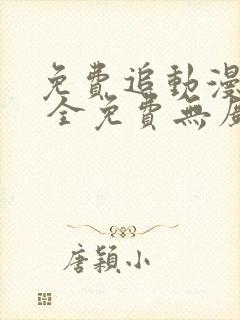 免費追動漫
全免費無
唐穎小